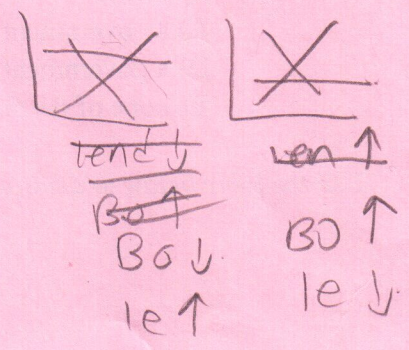 lend ↓
BO ↑
BO ↓
le ↑
len ↑
BO ↑
le ↓